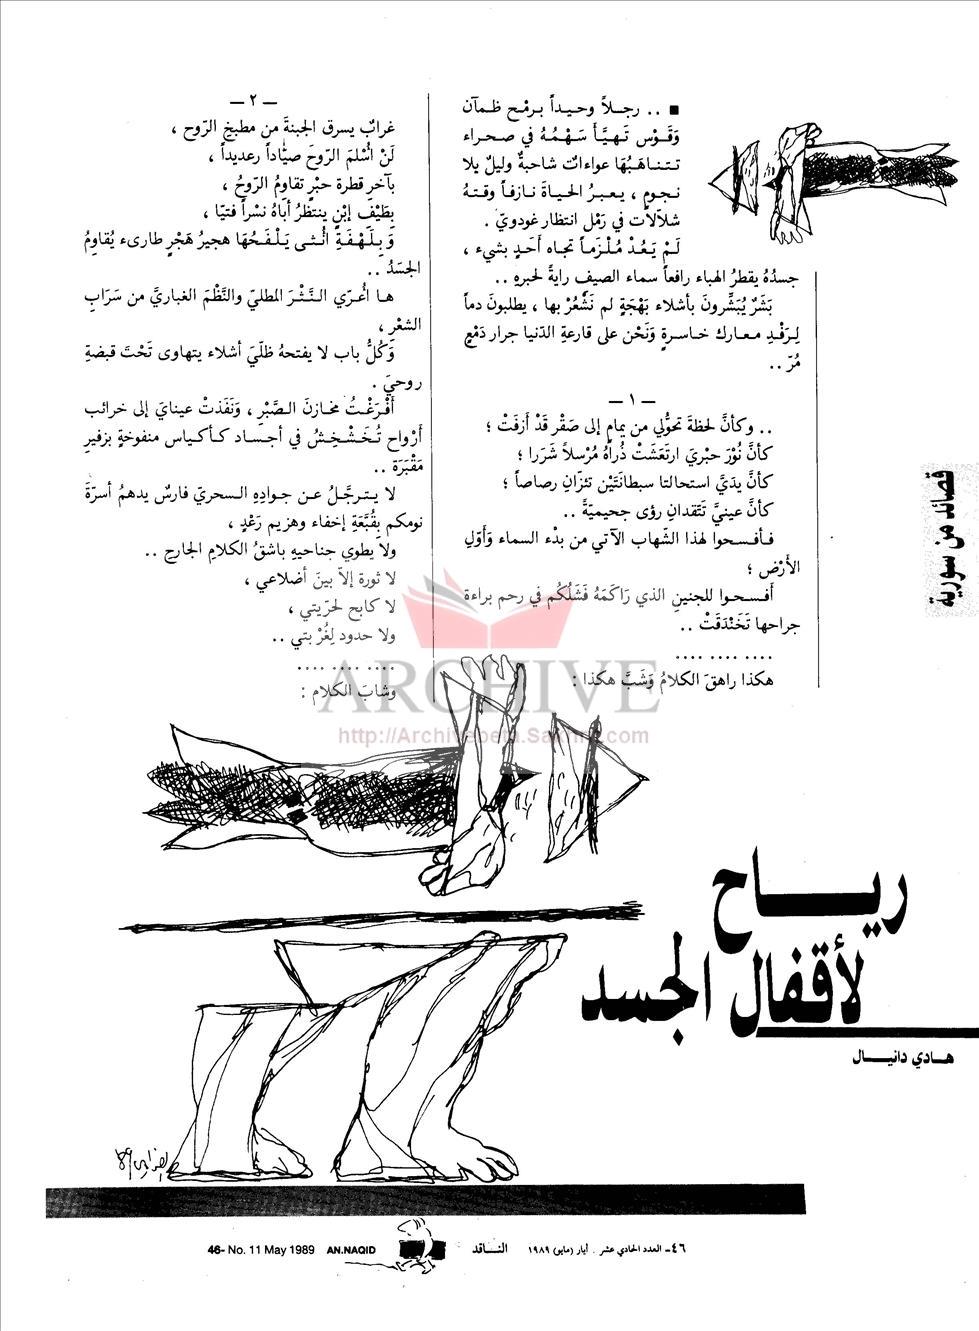 قصائد من سورية
رياح
لأقفال الجسد
هادي دانيال
■ .. رجلاً وحيداً برمْح ظمآن
وَقَوْس تَهيَّأ سَهْمُهُ في صحراء
تتناهبُها عواءات شاحبةٌ وليلٌ بلا
نجومٍ ، يعبرُ الحياةَ نازفاً وقتهُ
شلالات في رَمْل انتظار غودويّ .
لَمْ يَعُدْ مُلْزَماً تجاه أَحَدٍ بشيء ،
جسدُهُ يقطرُ الهباء رافعاً سماء الصيف رايةً لحبره ..
بَشَرٌ يُبَشِّرونَ بأشلاء بَهْجَةٍ لم نَشْعُرْ بها ، يطلبونَ دماً
لِرَفْدِ معارك خاسرةٍ وَنَحْن على قارعةِ الدّنيا جرار دَمْعٍ
مُرّ ..
— ١ —
.. وكأنَّ لحظةَ تحوُّلي من يمامٍ إلى صَقْر قَدْ أزفَتْ ؛
كأنَّ نُوْرَ حبْري ارتَعَشَتْ ذُراهُ مُرْسلاً شَرَرا ؛
كأنَّ يدَيَّ استحالتا سبطانَتَيْن تئزّانِ رصاصاً ؛
كأنَّ عينيَّ تَتَّقدانِ رؤى جحيميّةً ..
فأفسحوا لهذا الشّهاب الآتي من بدْء السماء وَأوّلِ
الأَرْض ؛
أَفسحوا للجنينِ الذي رَاكَمَهُ فَشَلُكُم في رحم براءة
جراحها تَخَنْدَقَتْ ..
.... .... ....
هكذا راهقَ الكلامُ وَشَبَّ هكذا :
— ٢ —
غرابٌ يسرق الجبنةَ من مطبخِ الرّوح ،
لَنْ أسْلمَ الرّوحَ صيّاداً رعديداً ،
بآخرِ قطرة حبْرٍ تقاومُ الرّوحُ ،
بِطَيْفِ إبْنٍ ينتظرُ أباهُ نسْراً فتيّا ،
وَبِلَهْفَةِ أنْثى يَلْفَحُهَا هجيرُ هَجْرٍ طارىء يُقاومُ
الجسَدُ ..
ها أُعرّي النَّثْرَ المطليّ والنَّظْمَ الغباريَّ من سَرَابِ
الشعْر ،
وَكُلُّ باب لا يفتحهُ ظلّيَ أشلاء يتهاوى تَحْتَ قبضةِ
روحيَ .
أفْرَغْتُ مخازنَ الصَّبْرِ ، وَنَفَذتْ عينايَ إلى خرائب
أرْواح تُخَشْخِشُ في أجساد كأكياس منفوخةٍ بزفيرِ
مَقْبَرَة ..
لا يترجَّلُ عن جوادِهِ السحريّ فارسٌ يدهمُ أسرّةَ
نومكم بِقُبَّعَةِ إخفاء وهزيم رَعْدٍ ،
ولا يطوي جناحيهِ باشقُ الكلامِ الجارحِ ..
لا ثورة إلاّ بينَ أضلاعي ،
لا كابح لحرّيتي ،
ولا حدود لِغُرْبتي ..
.... .... ....
وشابَ الكلام :
ARCHIVE
http://Archivebeta.Sakhrit.com
46- No. 11 May 1989 AN.NAQID
٤٦- العدد الحادي عشر . أيار (مايو) ١٩٨٩ الناقد